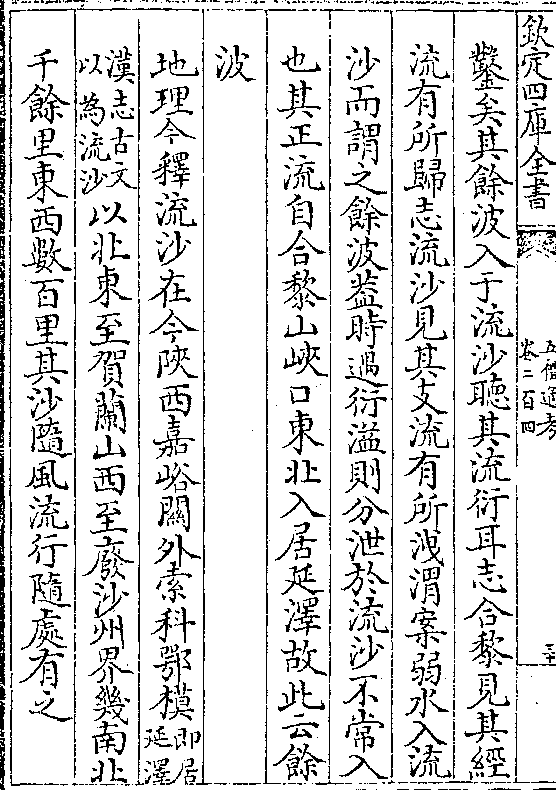 欽定四庫全書
五禮通考
卷二百四
鑿矣其餘波入于流沙聽其流衍耳志合黎見其經
流有所歸志流沙見其支流有所洩渭案弱水入流
沙而謂之餘波蓋時遇衍溢則分泄於流沙不常入
也其正流自合黎山峽口東北入居延澤故此云餘
波
地理今釋流沙在今陜西嘉峪關外索科鄂模即居
延澤
漢志古文
以為流沙以北東至賀蘭山西至廢沙州界幾南北
千餘里東西數百里其沙隨風流行隨處有之